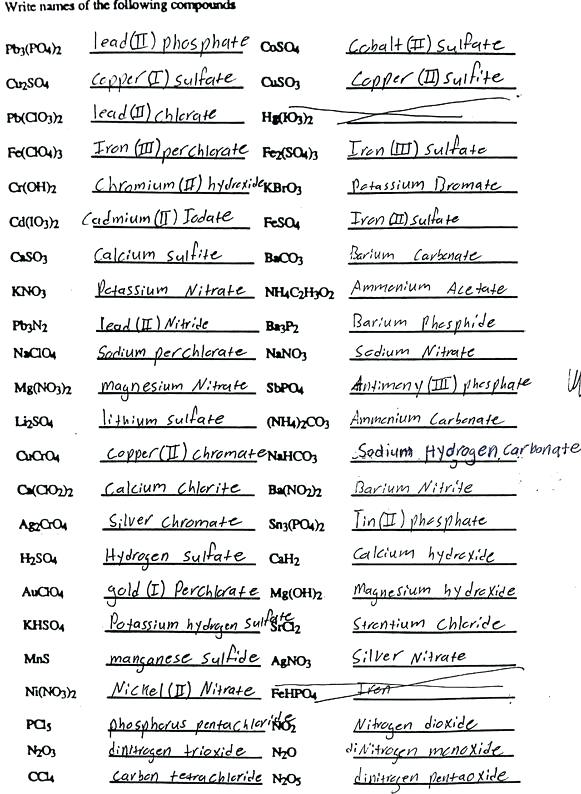 Write names of the following compounds
Pb3(PO4)2 lead(II) phosphate CoSO4 Cobalt(II) sulfate
Cu2SO4 copper(I) sulfate CuSO3 Copper (II) sulfite
Pb(ClO3)2 lead(II) chlorate Hg(IO3)2
Fe(ClO4)3 Iron (III) perchlorate Fe2(SO4)3 Iron (III) sulfate
Cr(OH)2 Chromium(II) hydroxide KBrO3 Potassium Bromate
Cd(IO3)2 Cadmium(II) Iodate FeSO4 Iron (II) sulfate
CaSO3 Calcium sulfite BaCO3 Barium Carbonate
KNO3 Potassium Nitrate NH4C2H3O2 Ammonium Acetate
Pb3N2 lead (II) Nitride Ba3P2 Barium Phosphide
NaClO4 Sodium perchlorate NaNO3 Sodium Nitrate
Mg(NO3)2 magnesium Nitrate SbPO4 Antimony(III) phosphate
Li2SO4 lithium sulfate (NH4)2CO3 Ammonium Carbonate
CuCrO4 copper(II) chromate NaHCO3 Sodium Hydrogen Carbonate
Ca(ClO2)2 Calcium Chlorite Ba(NO2)2 Barium Nitrite
Ag2CrO4 Silver Chromate Sn3(PO4)2 Tin(II) phosphate
H2SO4 Hydrogen sulfate CaH2 Calcium hydroxide
AuClO4 gold (I) Perchlorate Mg(OH)2 Magnesium hydroxide
KHSO4 Potassium hydrogen sulfate SrCl2 Strontium Chloride
MnS manganese sulfide AgNO3 Silver Nitrate
Ni(NO3)2 Nickel(II) Nitrate FeHPO4 Iron
PCl5 phosphorus pentachloride NO2 Nitrogen dioxide
N2O3 dinitrogen trioxide N2O diNitrogen monoxide
CCl4 carbon tetrachloride N2O5 dinitrogen pentaoxide